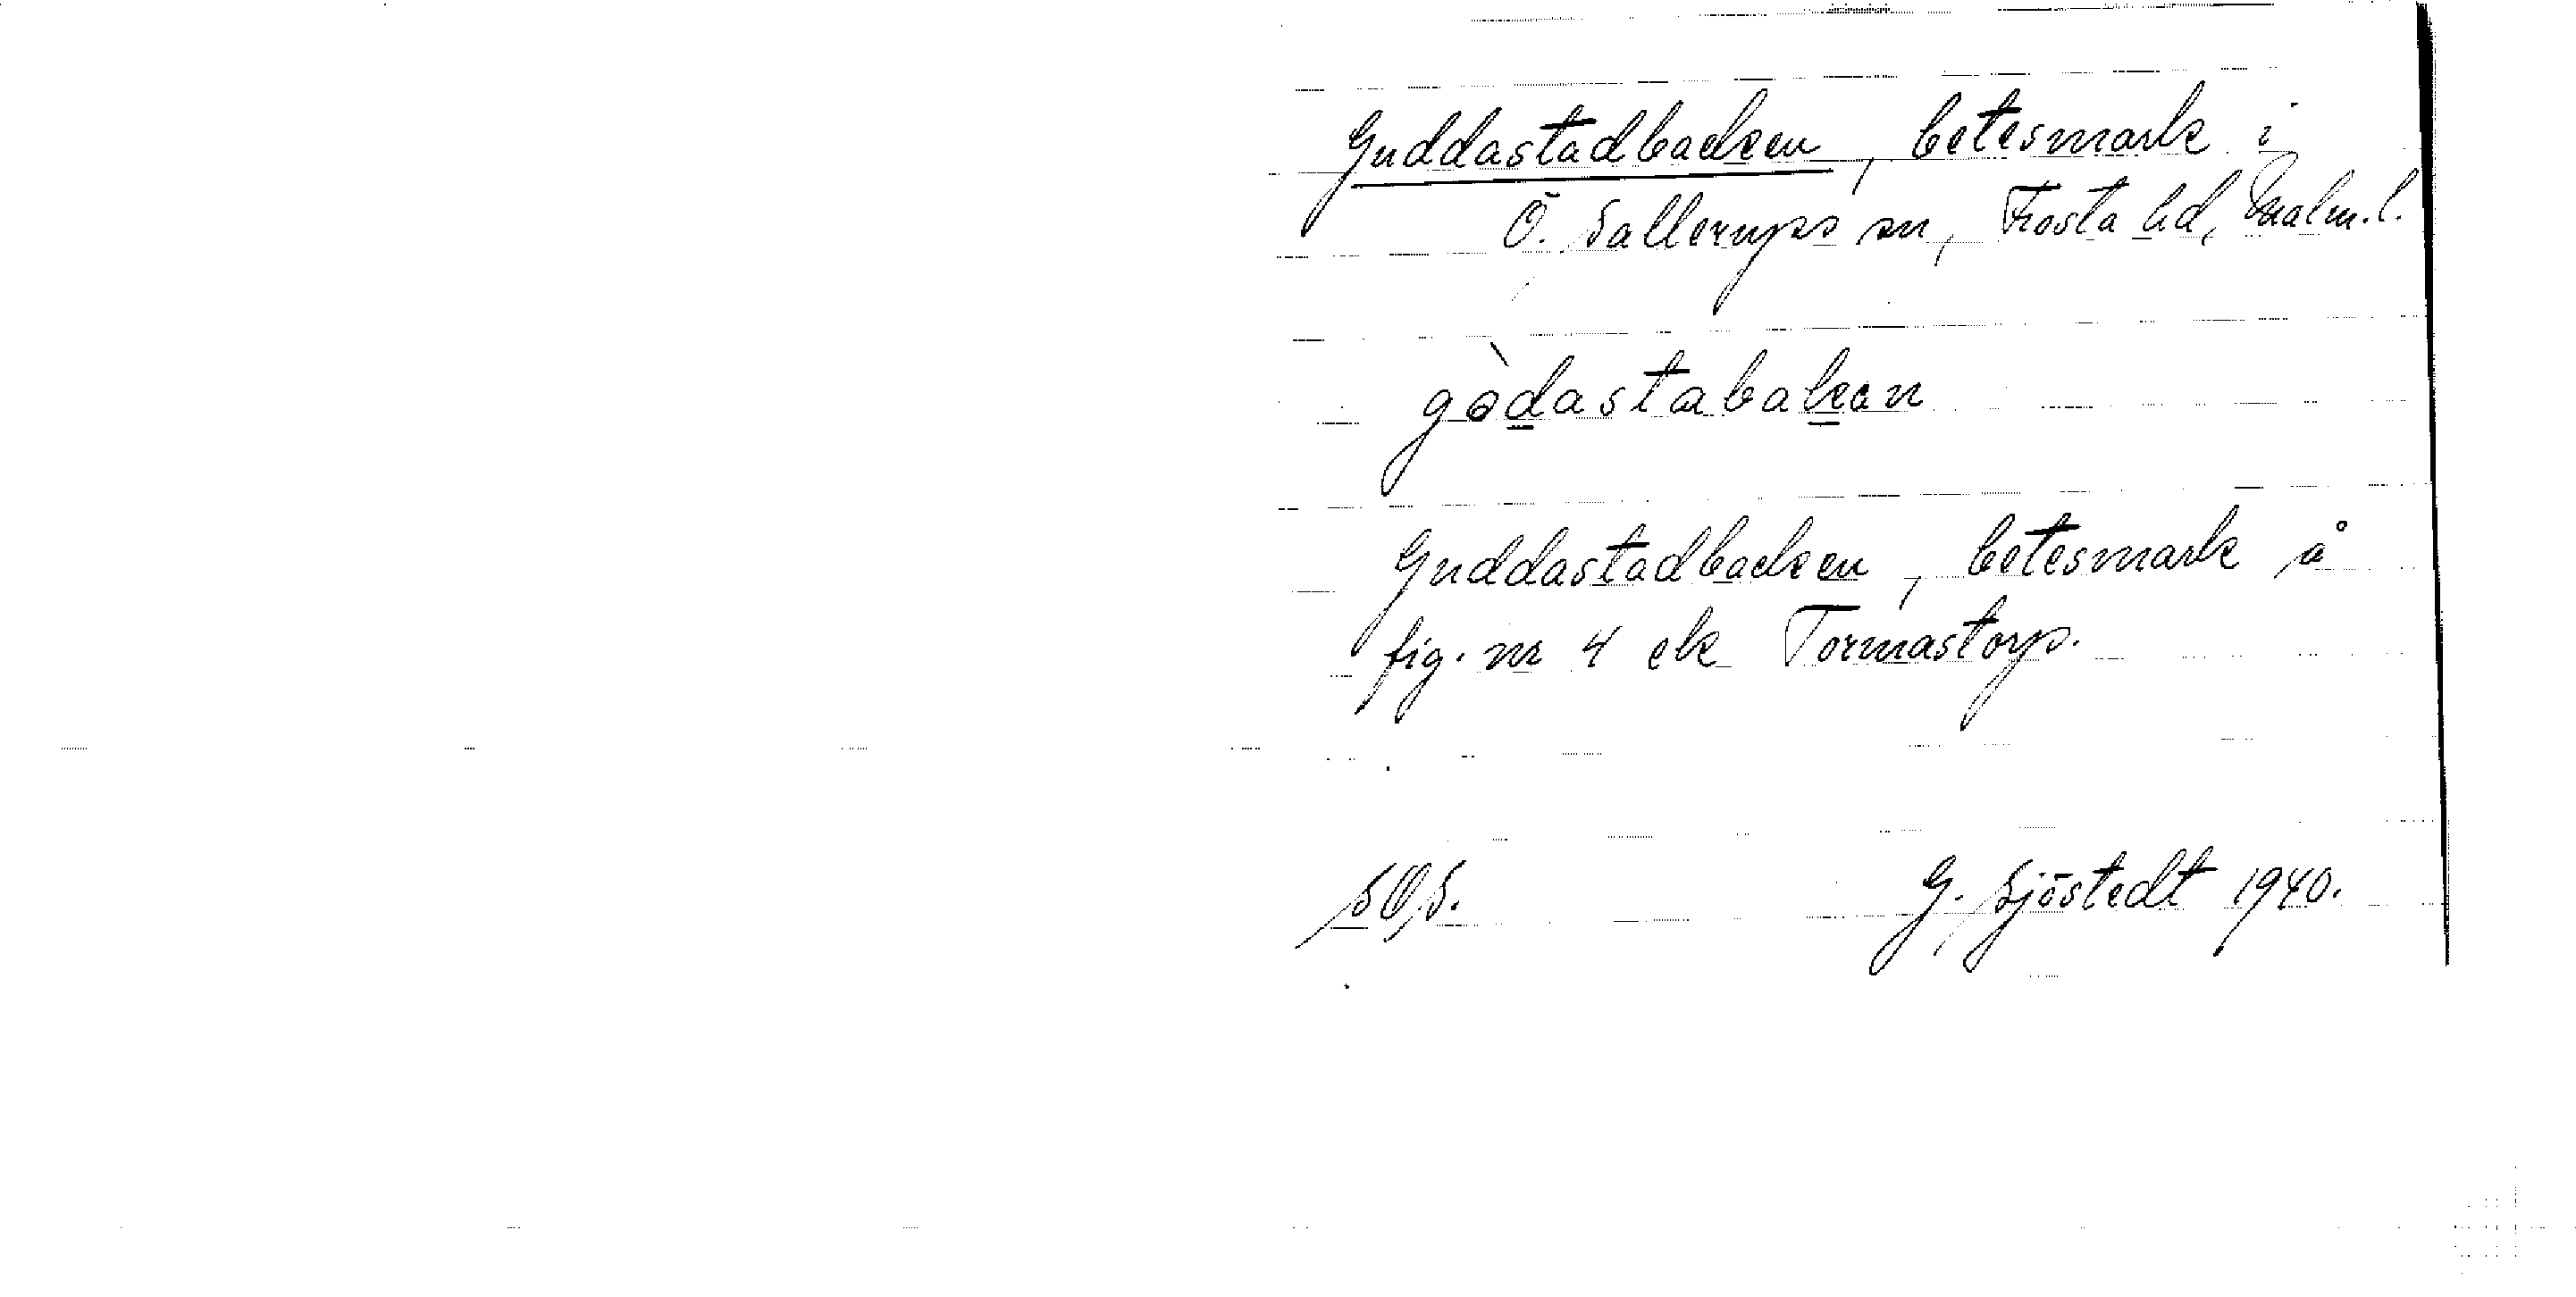 Guddastadbacken, betesmark i
Ö. Sallerups sn, Frosta hd, Malm.l.
gòdastabakan
Guddastadbacken, betesmark å
fig. nr 4 ek Tormastorp.
G. Sjöstedt 1940.